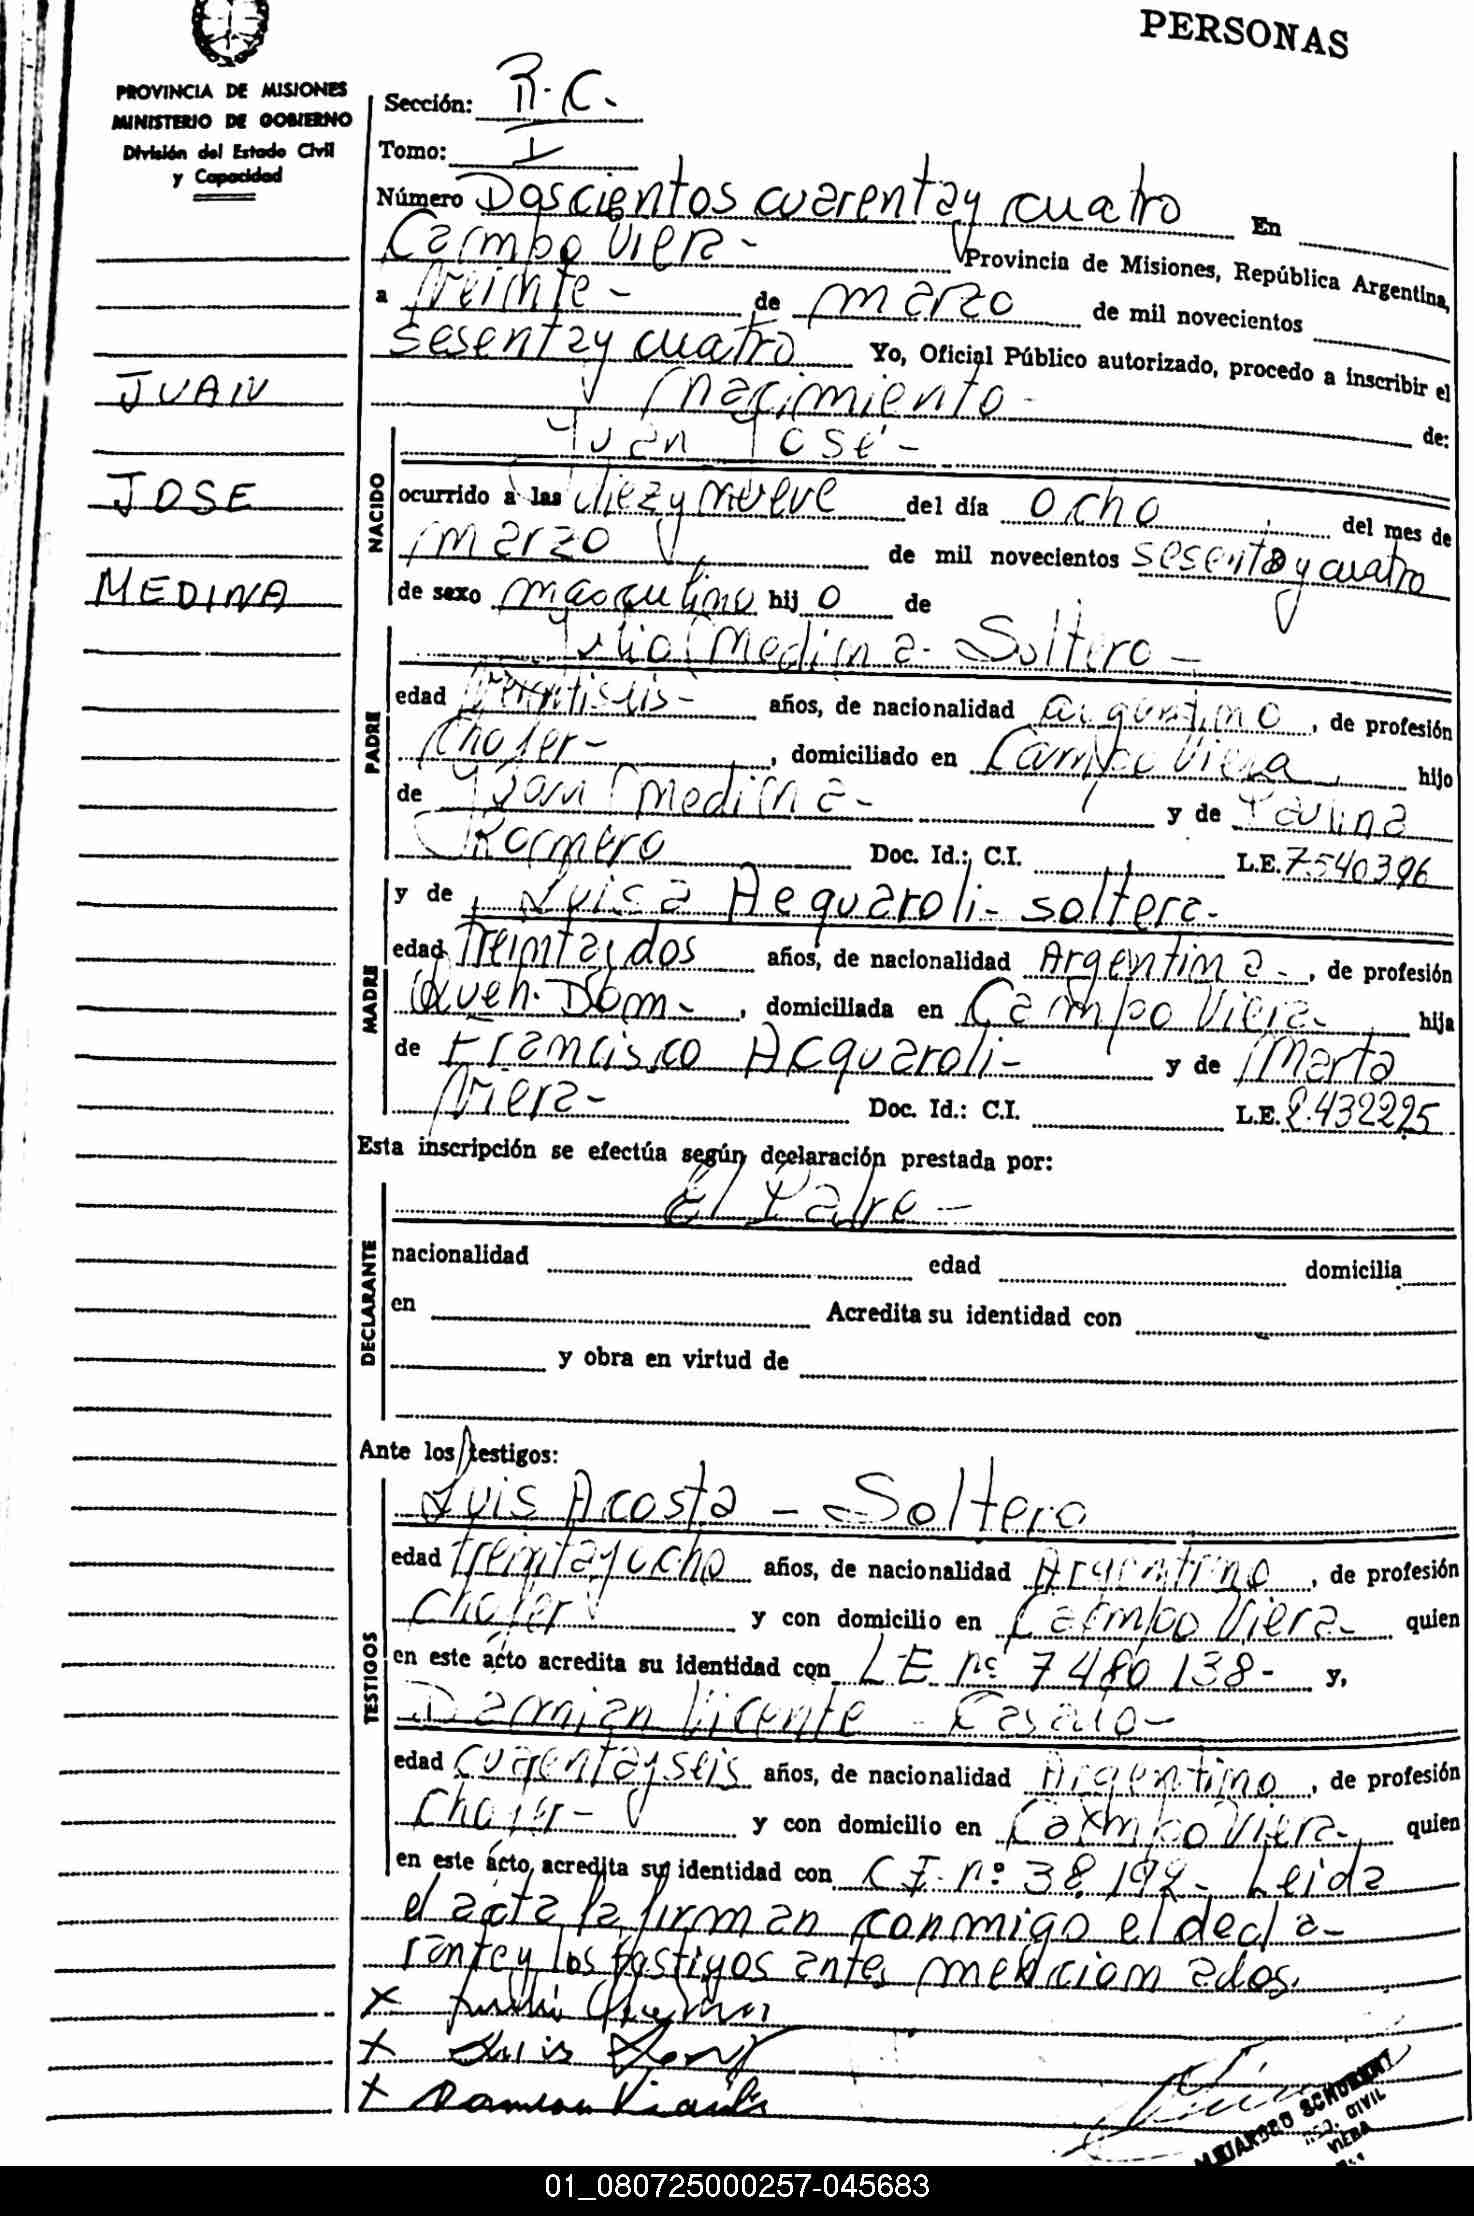 PERSONAS
PROVINCIA DE MISIONES
MINISTERIO DE GOBIERNO
División del Estado Civil
y Capacidad
JUAN
JOSE
MEDINA
Sección: R.C.
Tomo: I
Número Doscientos cuarenta y cuatro En
Campo Viera - Provincia de Misiones, República Argentina,
a treinte - de marzo de mil novecientos
sesenta y cuatro Yo, Oficial Público autorizado, procedo a inscribir el
nacimiento - de:
NACIDO
Juan José -
ocurrido a las diez y nueve del día ocho del mes de
marzo de mil novecientos sesenta y cuatro
de sexo masculino hij o de
PADRE
Julio Medina - Soltero -
edad años, de nacionalidad argentino, de profesión
Chofer -, domiciliado en Campo Viera, hijo
de Juan Medina - y de Paulina
Romero Doc. Id.: C.I. L.E. 7540396
MADRE
y de Luisa Aequaroli - soltera -
edad treinta y dos años, de nacionalidad Argentina -, de profesión
Queh. Dom -, domiciliada en Campo Viera - hija
de Francisco Acquaroli - y de Marta
Viera - Doc. Id.: C.I. L.E. 2.432225
Esta inscripción se efectúa según declaración prestada por:
DECLARANTE
El Padre -
nacionalidad edad domicilia
en Acredita su identidad con
y obra en virtud de
Ante los testigos:
TESTIGOS
Luis Acosta - Soltero
edad treinta y ocho años, de nacionalidad Argentino, de profesión
chofer y con domicilio en Campo Viera - quien
en este acto acredita su identidad con L.E. nº 7480138 - y,
Damian Vicente - Casado -
edad cuarenta y seis años, de nacionalidad Argentino, de profesión
Chofer - y con domicilio en Campo Viera - quien
en este acto acredita su identidad con C.I. nº: 38.192 - Leida
el acta la firman conmigo el decla-
rante y los testigos antes mencionados.
X
X Luis
X Damian Vicente
ALEJANDRO SCHUBERT
CIVIL
VIERA
01_080725000257-045683